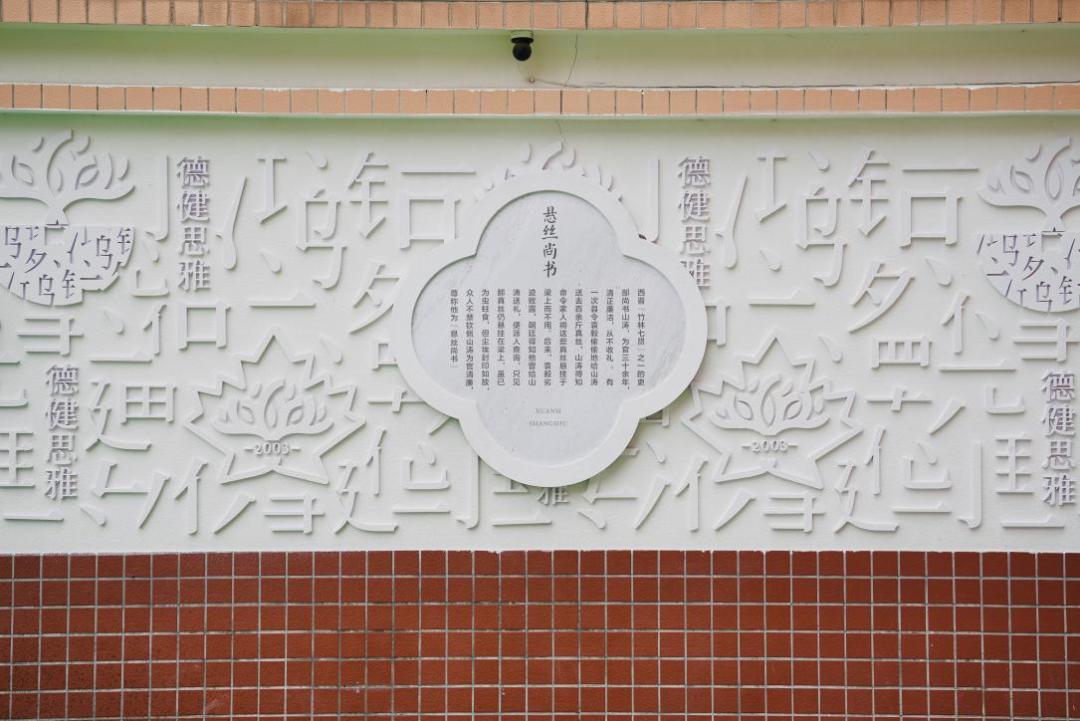 德健思雅
德健思雅
悬丝尚书
西晋“竹林七贤”之一的吏
部尚书山涛，为官三十余年，
清正廉洁，从不收礼。有
一次县令袁毅偷偷地给山涛
送去百余斤真丝，山涛得知
命令家人将这些真丝悬挂于
梁上而不用。后来，袁毅劣
迹败露，朝廷得知他曾给山
涛送礼，便派人查询，只见
那真丝仍悬挂在梁上，虽已
为虫蛀食，但尘埃封印如故，
众人不禁钦佩山涛为官清廉，
尊称他为“悬丝尚书”
XUANSI
SHANGSHU
德健思雅
德健思雅
2003
2003
雅